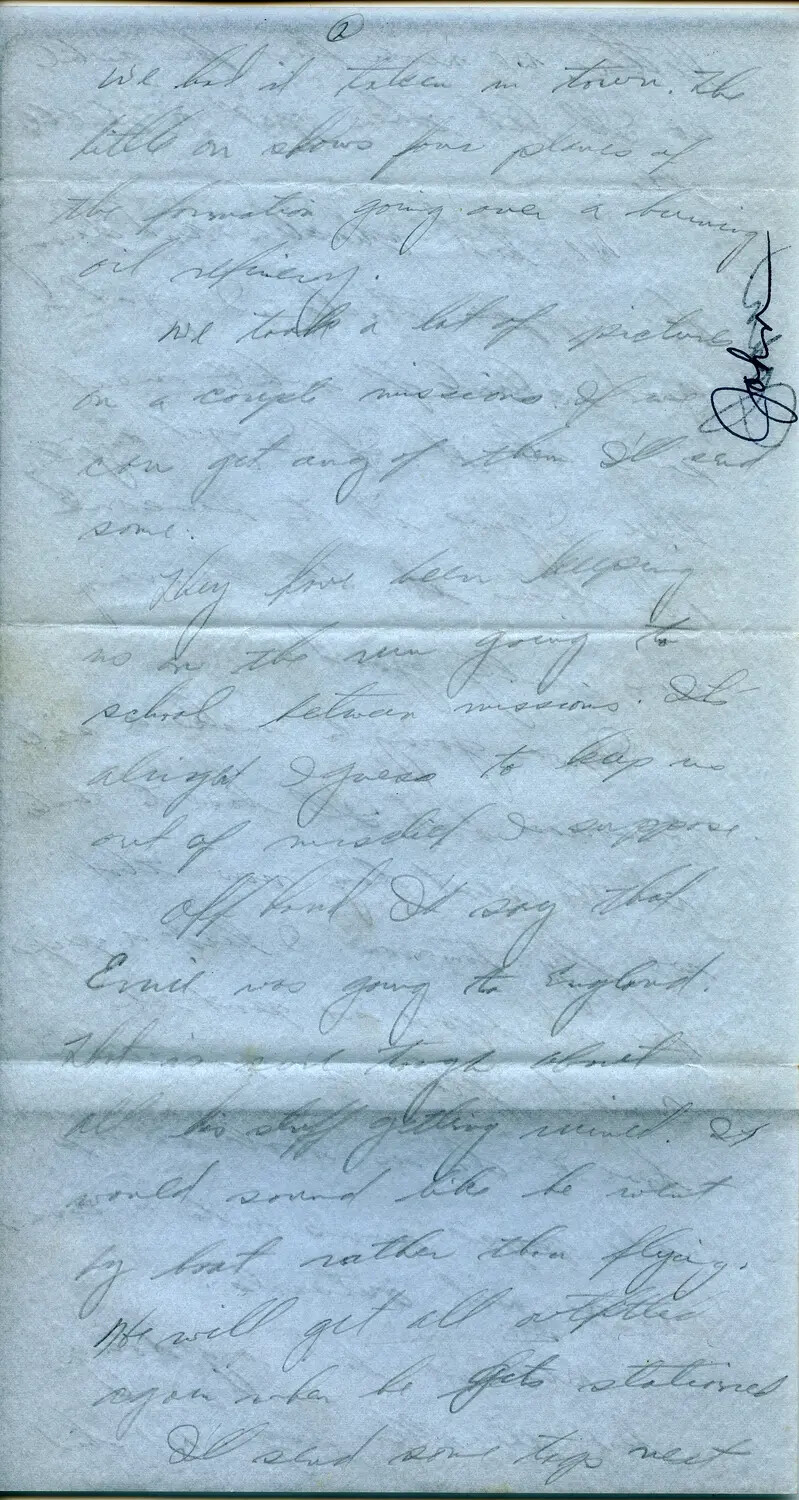 2
we had it taken in town. The
little on shows four planes of
the formation going over a burning
oil refinery.
We took a lot of pictures
on a couple missions. If we
can get any of them I'll send
some.
John
They have been keeping
us on the run going to
school between missions. It's
alright I guess to keep us
out of mischief I suppose.
Off hand I'd say that
Ernie was going to England.
That is sure tough about
all his stuff getting ruined. It
would sound like he went
by boat rather than flying.
He will get all outfitted
again when he gets stationed
I'll send some togs next